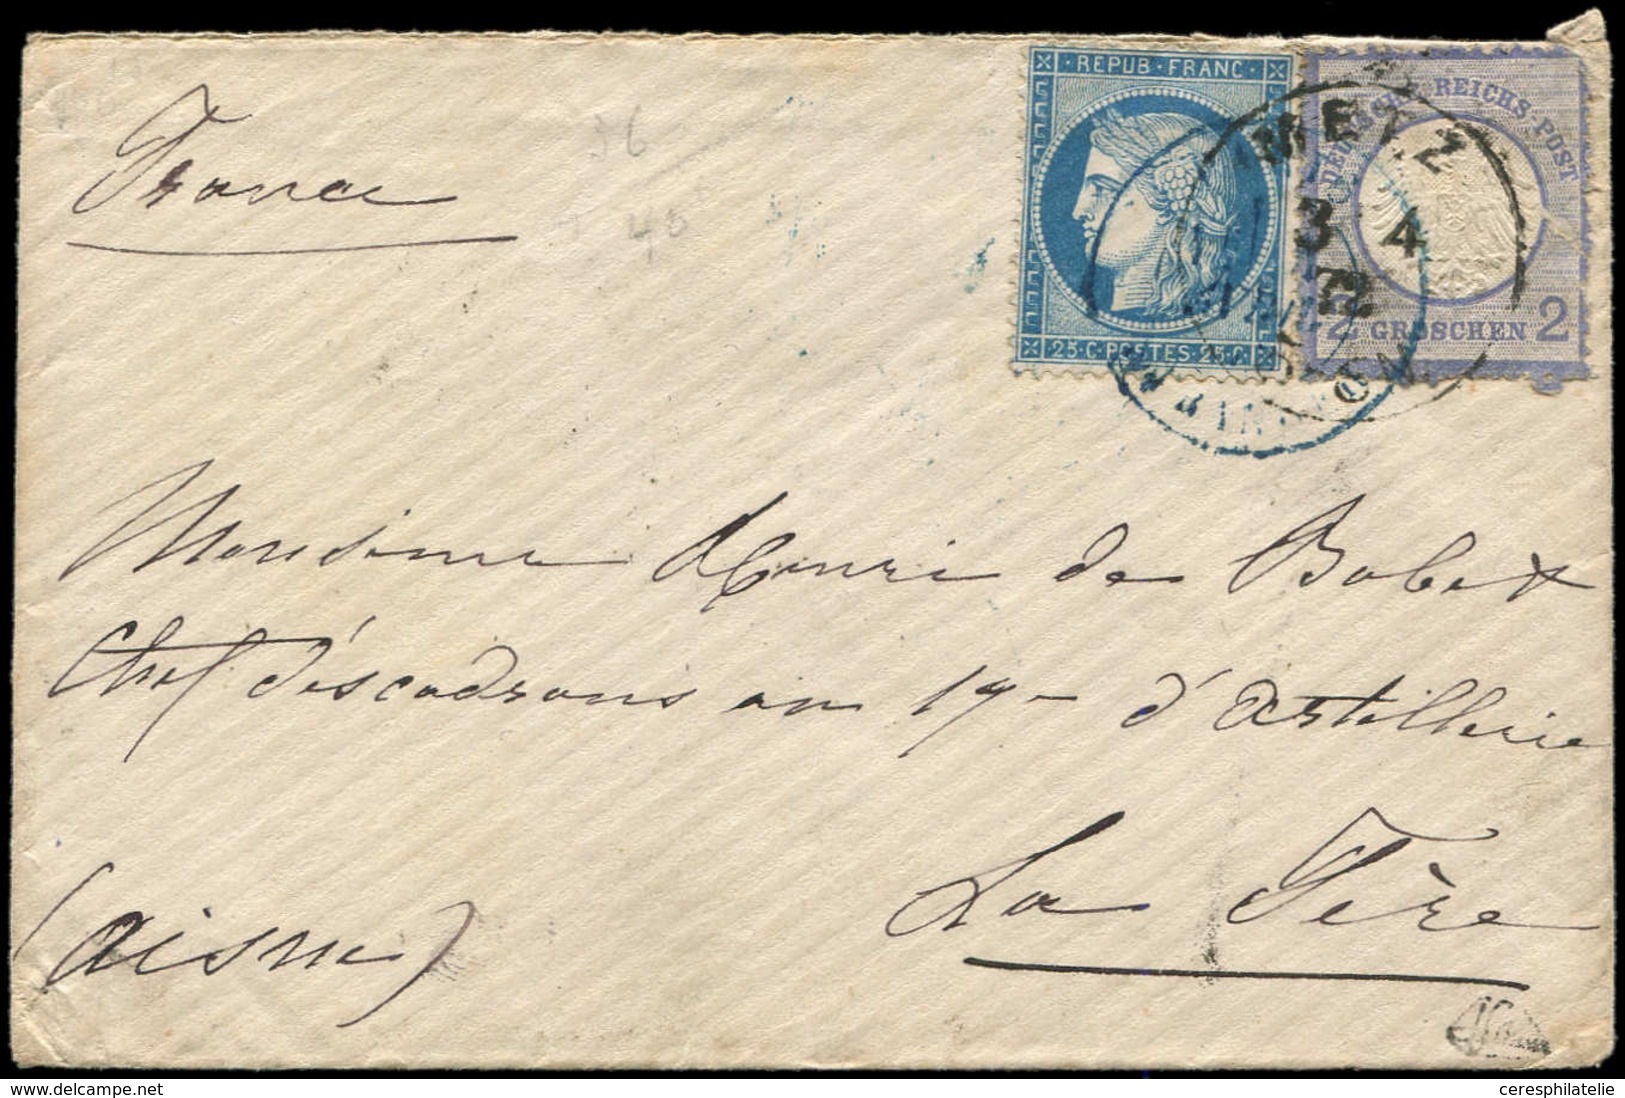 France
36
40
REPUB · FRANC
25 · C · POSTES · 25 · C
DEUTSCHE REICHS-POST
2 GROSCHEN 2
METZ
3 4
72
Monsieur Henri de Bobet
Chef d'éscadrons au 19e d'artillerie
La Fère
(aisne)
www.delcampe.net
ceresphilatelie